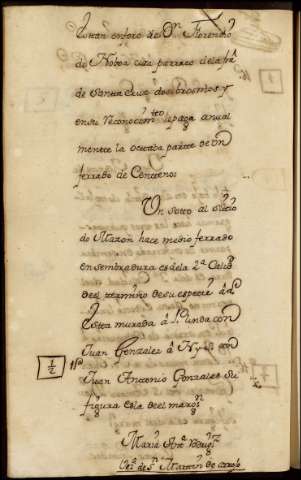 enforo de Dn. Florencio
de Noboa cura parraco dela fra.
de Santa Cruz dos brosmos y
en su Reconocemto. lepaga anual
mente la octaba parte de un
ferrado de Centeno:
Un Soto al Sitio
do Mazon hace medio ferrado
en sembradura es dela 2a. Calid.
del termino de su especie
esta murada linda con
Juan Gonzalez con
1/2 Juan Antonio Gonzales su
figura es la del margn.
Maria Anta. Rodrigz.
de Sn. Martin de